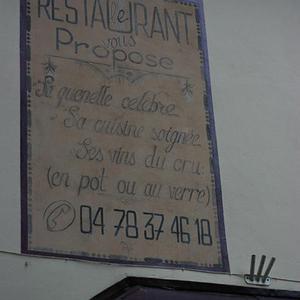 RESTAURANT
le
vous
Propose
Sa quenelle celebre
Sa cuisine soignée
Ses vins du cru
(en pot ou au verre)
04 78 37 46 18